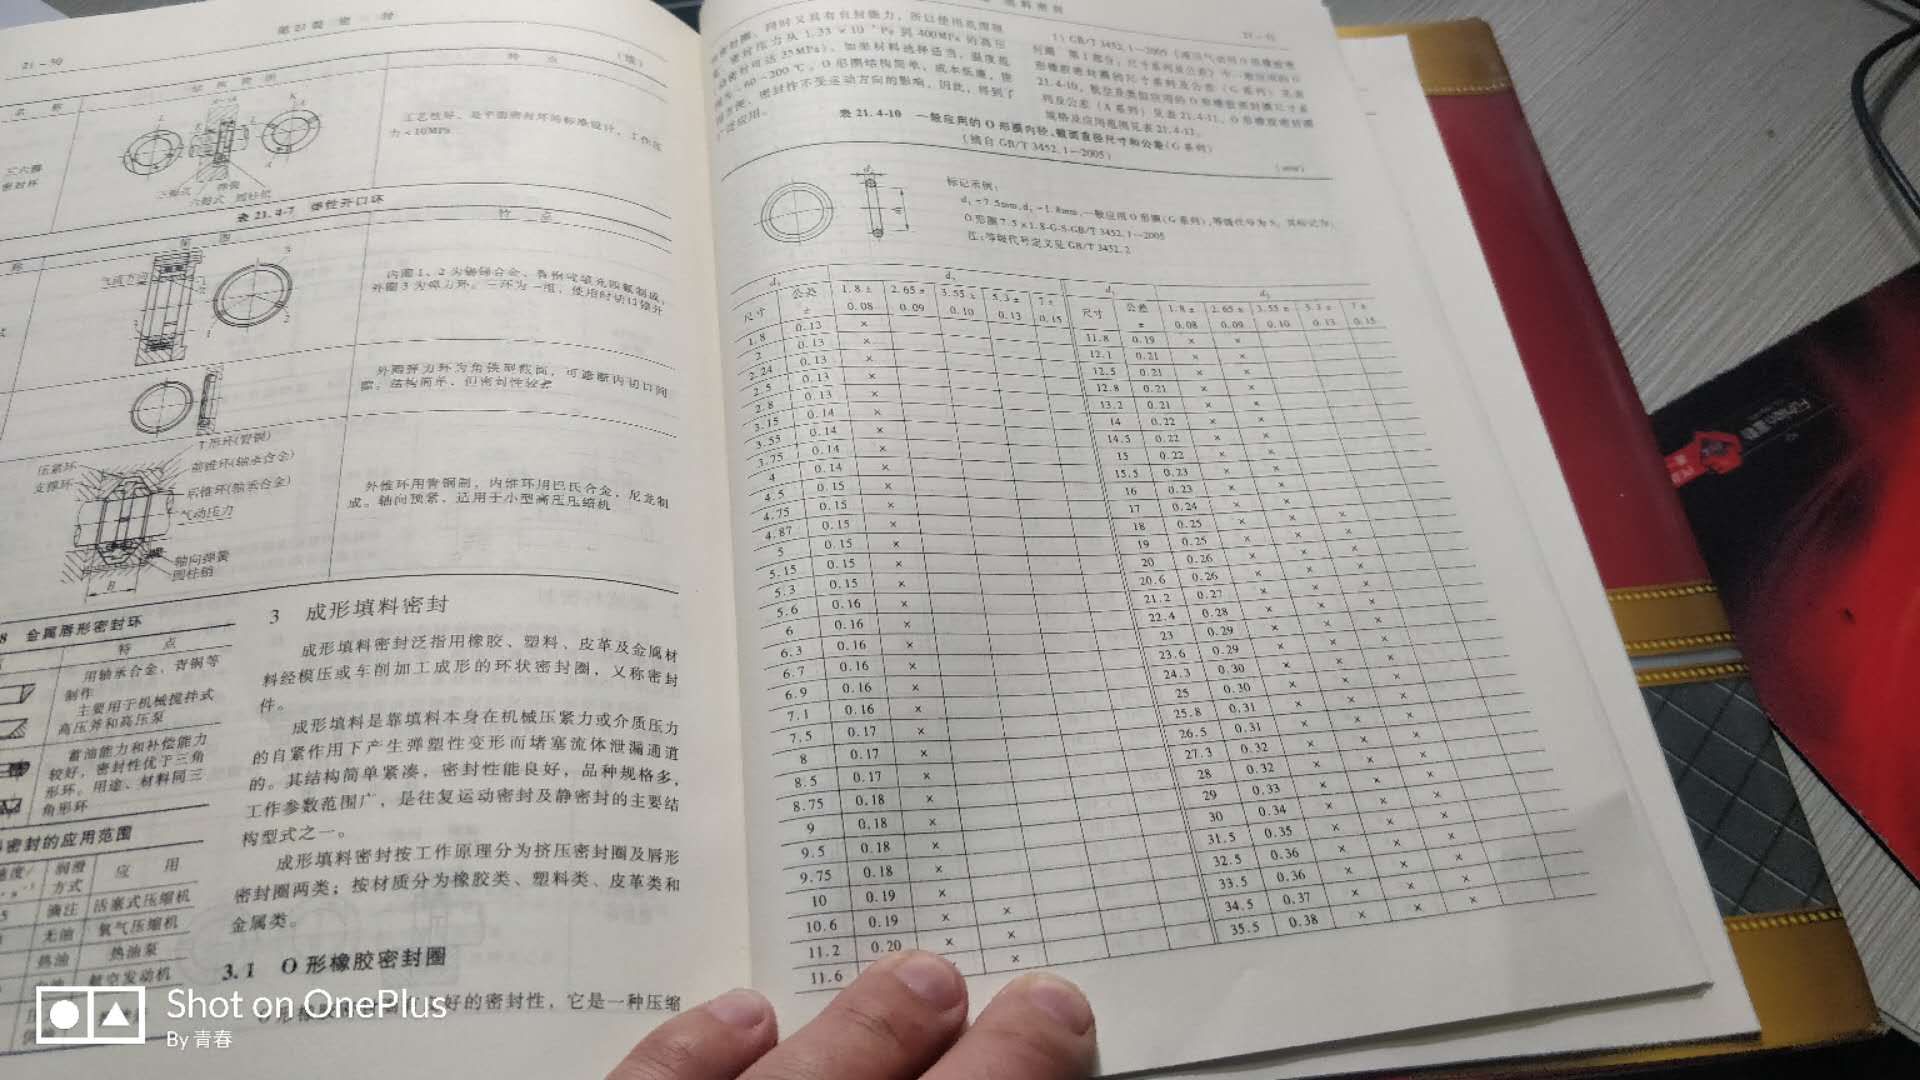 21-50
第21篇 密 封
(续)
名 称
结 构 简 图
特 点
三六瓣
密封环
工艺性好、是平面密封环的标准设计。工作压
力<10MPa
三瓣式 弹簧
六瓣式 圆柱销
表 21.4-7 弹性开口环
称
简 图
特 点
气流方向
外圈3为弹力环。三环为一组,使用时切口错开
外圈弹力环为角铁型截面,可遮断内切口间
隙。结构简单,但密封性较差
T形环(青铜)
压紧环
支撑环
前锥环(轴承合金)
后锥环(轴承合金)
气动压力
轴向弹簧
圆柱销
B
外锥环用青铜制,内锥环用巴氏合金、尼龙制
成。轴向预紧,适用于小型高压压缩机
8 金属唇形密封环
特 点
用轴承合金、青铜等
制作
主要用于机械搅拌式
高压斧和高压泵
蓄油能力和补偿能力
较好,密封性优于三角
形环。用途、材料同三
角形环
密封的应用范围
速度/
润滑
方式
应 用
滴注 活塞式压缩机
无油 氧气压缩机
热油 热油泵
航空发动机
3 成形填料密封
成形填料密封泛指用橡胶、塑料、皮革及金属材
料经模压或车削加工成形的环状密封圈,又称密封
件。
成形填料是靠填料本身在机械压紧力或介质压力
的自紧作用下产生弹塑性变形而堵塞流体泄漏通道
的。其结构简单紧凑,密封性能良好,品种规格多,
工作参数范围广,是往复运动密封及静密封的主要结
构型式之一。
成形填料密封按工作原理分为挤压密封圈及唇形
密封圈两类;按材质分为橡胶类、塑料类、皮革类和
金属类。
3.1 O形橡胶密封圈
好的密封性,它是一种压缩
填料密封
21-51
密封圈,同时又具有自封能力,所以使用范围很
密封压力从1.33×10 Pa到400MPa的高压
密封可达35MPa)。如果材料选择适当,温度范
-60~200℃。O形圈结构简单,成本低廉,使
密封性不受运动方向的影响,因此,得到了
广泛应用。
1) GB/T 3452.1—2005《液压气动用O形橡胶密
封圈 第1部分:尺寸系列及公差》中一般应用的O
形橡胶密封圈的尺寸系列及公差(G系列)见表
21.4-10,航空及类似应用的O形橡胶密封圈尺寸系
列及公差(A系列)见表21.4-11。O形橡胶密封圈
规格及应用范围见表21.4-12。
表 21.4-10 一般应用的O形圈内径、截面直径尺寸和公差(G系列)
(摘自GB/T 3452.1—2005)
(mm)
标记示例:
d₁=7.5mm,d₂=1.8mm,一般应用O形圈(G系列),等级代号为S,其标记为:
O形圈7.5×1.8-G-S-GB/T 3452.1—2005
注:等级代号定义见GB/T 3452.2
d₁ d₂ d₁ d₂
尺寸 公差 ± 1.8± 0.08 2.65± 0.09 3.55± 0.10 5.3± 0.13 7± 0.15 尺寸 公差 ± 1.8± 0.08 2.65± 0.09 3.55± 0.10 5.3± 0.13 7± 0.15
1.8 0.13 × 11.8 0.19 × ×
2 0.13 × 12.1 0.21 × ×
2.24 0.13 × 12.5 0.21 × ×
2.5 0.13 × 12.8 0.21 × ×
2.8 0.13 × 13.2 0.21 × ×
3.15 0.14 × 14 0.22 × ×
3.55 0.14 × 14.5 0.22 × ×
3.75 0.14 × 15 0.22 × ×
4 0.14 × 15.5 0.23 × ×
4.5 0.15 × 16 0.23 × ×
4.75 0.15 × 17 0.24 × ×
4.87 0.15 × 18 0.25 × × ×
5 0.15 × 19 0.25 × × ×
5.15 0.15 × 20 0.26 × × ×
5.3 0.15 × 20.6 0.26 × × ×
5.6 0.16 × 21.2 0.27 × × ×
6 0.16 × 22.4 0.28 × × ×
6.3 0.16 × 23 0.29 × × ×
6.7 0.16 × 23.6 0.29 × × ×
6.9 0.16 × 24.3 0.30 × × ×
7.1 0.16 × 25 0.30 × × ×
7.5 0.17 × 25.8 0.31 × × ×
8 0.17 × 26.5 0.31 × × ×
8.5 0.17 × 27.3 0.32 × × ×
8.75 0.18 × 28 0.32 × × ×
9 0.18 × 29 0.33 × × ×
9.5 0.18 × 30 0.34 × × ×
9.75 0.18 × 31.5 0.35 × × ×
10 0.19 × 32.5 0.36 × × ×
10.6 0.19 × × 33.5 0.36 × × ×
11.2 0.20 × × 34.5 0.37 × × ×
11.6 × 35.5 0.38 × × ×
Shot on OnePlus
By 青春